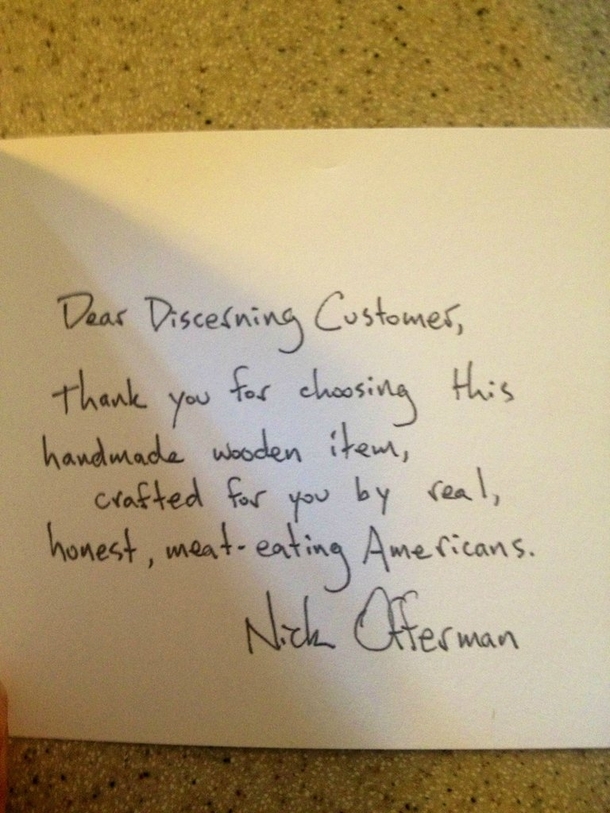 Dear Discerning Customer,
Thank you for choosing this
handmade wooden item,
crafted for you by real,
honest, meat-eating Americans.
Nick Offerman